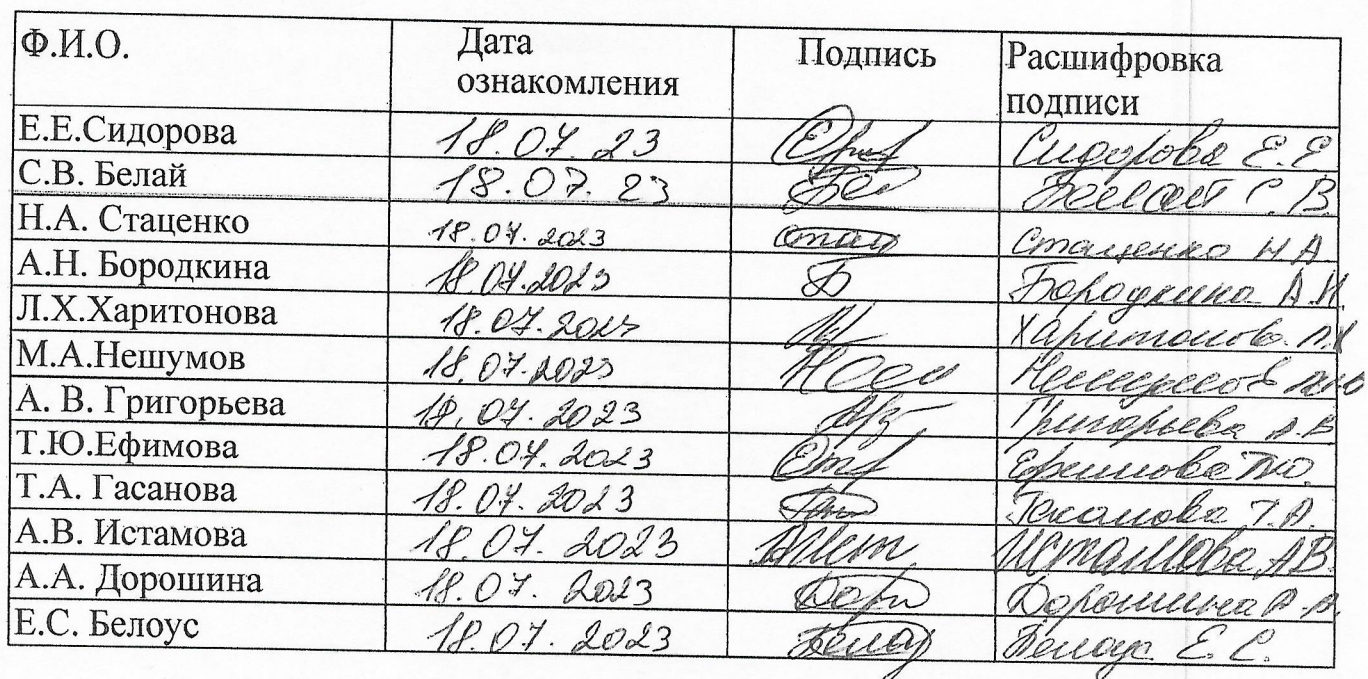 Ф.И.О. Дата ознакомления Подпись Расшифровка подписи
Е.Е.Сидорова 18.07.23 Сидорова Е.Е
С.В. Белай 18.07.23 Белай С.В.
Н.А. Стаценко 18.07.2023 стац Стаценко Н А
А.Н. Бородкина 18.07.2023 Б Бородкина А.Н.
Л.Х.Харитонова 18.07.2023 Харитонова Л.Х
М.А.Нешумов 18.07.2023 Нешумов
А. В. Григорьева 18.07.2023 Григорьева А.В
Т.Ю.Ефимова 18.07.2023 Ефимова Т.Ю.
Т.А. Гасанова 18.07.2023 Гасанова Т.А.
А.В. Истамова 18.07.2023 Истамова АВ.
А.А. Дорошина 18.07.2023 Доро Дорошина А.А.
Е.С. Белоус 18.07.2023 Белоу Белоус Е.С.